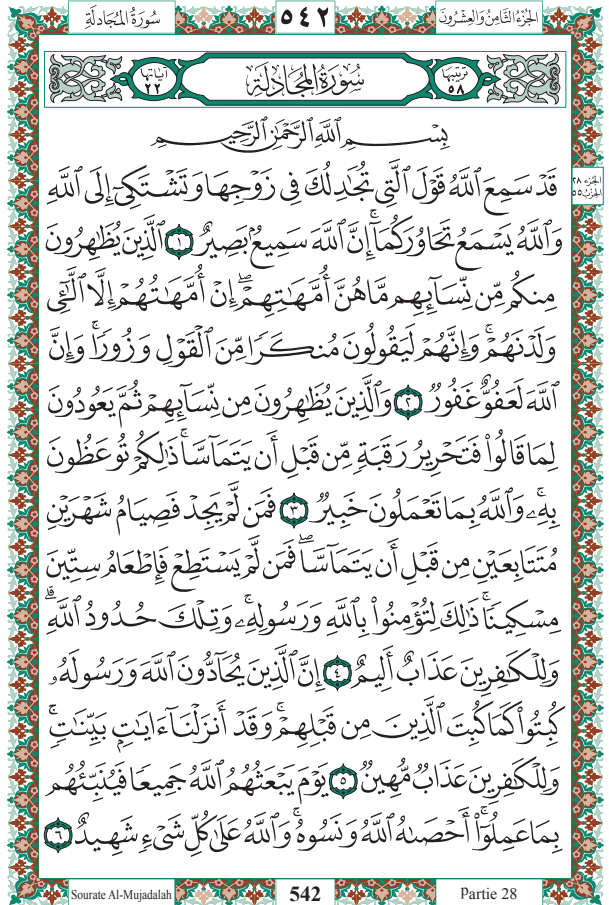 سُورَةُ الْمُجَادلَةِ ٥٤٢ الجُزْءُ الثَّامِنُ وَالْعِشْرُونَ
تَرتِيبُهَا ٥٨ سُورَةُ الْمُجَادلَةِ آيَاتُهَا ٢٢
بِسْمِ ٱللَّهِ ٱلرَّحْمَٰنِ ٱلرَّحِيمِ
قَدْ سَمِعَ ٱللَّهُ قَوْلَ ٱلَّتِي تُجَٰدِلُكَ فِي زَوْجِهَا وَتَشْتَكِيٓ إِلَى ٱللَّهِ
الجزء ٢٨
الحزب ٥٥
وَٱللَّهُ يَسْمَعُ تَحَاوُرَكُمَآۚ إِنَّ ٱللَّهَ سَمِيعُۢ بَصِيرٌ ١ ٱلَّذِينَ يُظَٰهِرُونَ
مِنكُم مِّن نِّسَآئِهِم مَّا هُنَّ أُمَّهَٰتِهِمْۖ إِنْ أُمَّهَٰتُهُمْ إِلَّا ٱلَّٰٓـِٔي
وَلَدْنَهُمْۚ وَإِنَّهُمْ لَيَقُولُونَ مُنكَرًا مِّنَ ٱلْقَوْلِ وَزُورًاۚ وَإِنَّ
ٱللَّهَ لَعَفُوٌّ غَفُورٌ ٢ وَٱلَّذِينَ يُظَٰهِرُونَ مِن نِّسَآئِهِمْ ثُمَّ يَعُودُونَ
لِمَا قَالُواْ فَتَحْرِيرُ رَقَبَةٍ مِّن قَبْلِ أَن يَتَمَآسَّاۚ ذَٰلِكُمْ تُوعَظُونَ
بِهِۦۚ وَٱللَّهُ بِمَا تَعْمَلُونَ خَبِيرٌ ٣ فَمَن لَّمْ يَجِدْ فَصِيَامُ شَهْرَيْنِ
مُتَتَابِعَيْنِ مِن قَبْلِ أَن يَتَمَآسَّاۖ فَمَن لَّمْ يَسْتَطِعْ فَإِطْعَامُ سِتِّينَ
مِسْكِينًاۚ ذَٰلِكَ لِتُؤْمِنُواْ بِٱللَّهِ وَرَسُولِهِۦۚ وَتِلْكَ حُدُودُ ٱللَّهِۗ
وَلِلْكَٰفِرِينَ عَذَابٌ أَلِيمٌ ٤ إِنَّ ٱلَّذِينَ يُحَآدُّونَ ٱللَّهَ وَرَسُولَهُۥ
كُبِتُواْ كَمَا كُبِتَ ٱلَّذِينَ مِن قَبْلِهِمْۚ وَقَدْ أَنزَلْنَآ ءَايَٰتِۭ بَيِّنَٰتٍۚ
وَلِلْكَٰفِرِينَ عَذَابٌ مُّهِينٌ ٥ يَوْمَ يَبْعَثُهُمُ ٱللَّهُ جَمِيعًا فَيُنَبِّئُهُم
بِمَا عَمِلُوٓاْۚ أَحْصَىٰهُ ٱللَّهُ وَنَسُوهُۚ وَٱللَّهُ عَلَىٰ كُلِّ شَيْءٍ شَهِيدٌ ٦
Sourate Al-Mujadalah 542 Partie 28